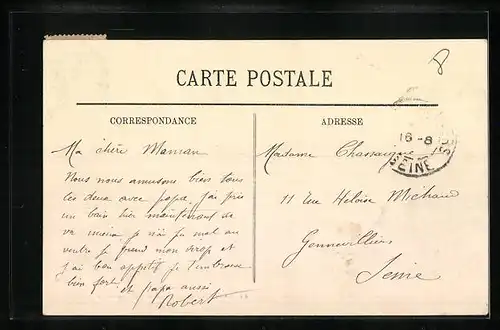 8
CARTE POSTALE
CORRESPONDANCE
ADRESSE
16-8
SEINE
Ma chère Maman
Nous nous amusons bien tous
les deux avec papa. j'ai pris
un bain hier maintenant de
ve je n'ai pu mal au
ventre je prend mon sirop et
j'ai bon appétit je t'embrasse
bien fort et papa aussi
Robert
Madame Chassaigne
11 Rue Héloïse Michaud
Gennevilliers
Seine